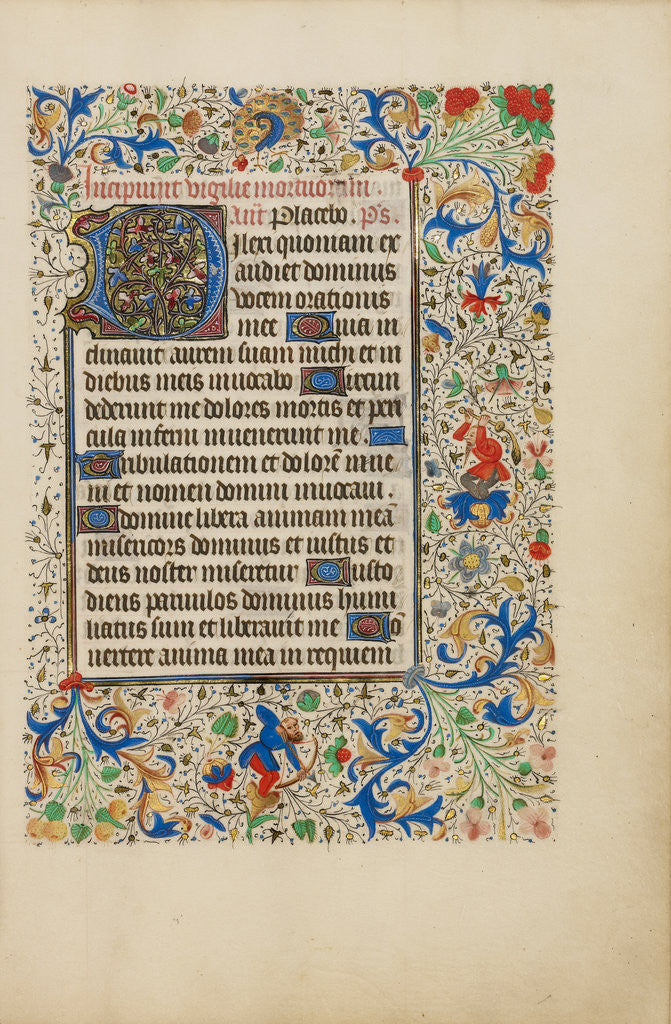 Incipiunt vigilie mortuorum
Ant̄ Placebo. Ps.
Dilexi quoniam ex
audiet dominus
vocem orationis
mee Quia in
clinavit aurem suam michi et in
diebus meis invocabo Circun
dederunt me dolores mortis et peri
cula inferni invenerunt me.
Tribulationem et dolorē inve
ni et nomen domini invocavi.
O domine libera animam meā
misericors dominus et iustus et
deus noster miseretur Custo
diens parvulos dominus humi
liatus sum et liberavit me Cō
vertere anima mea in requiem